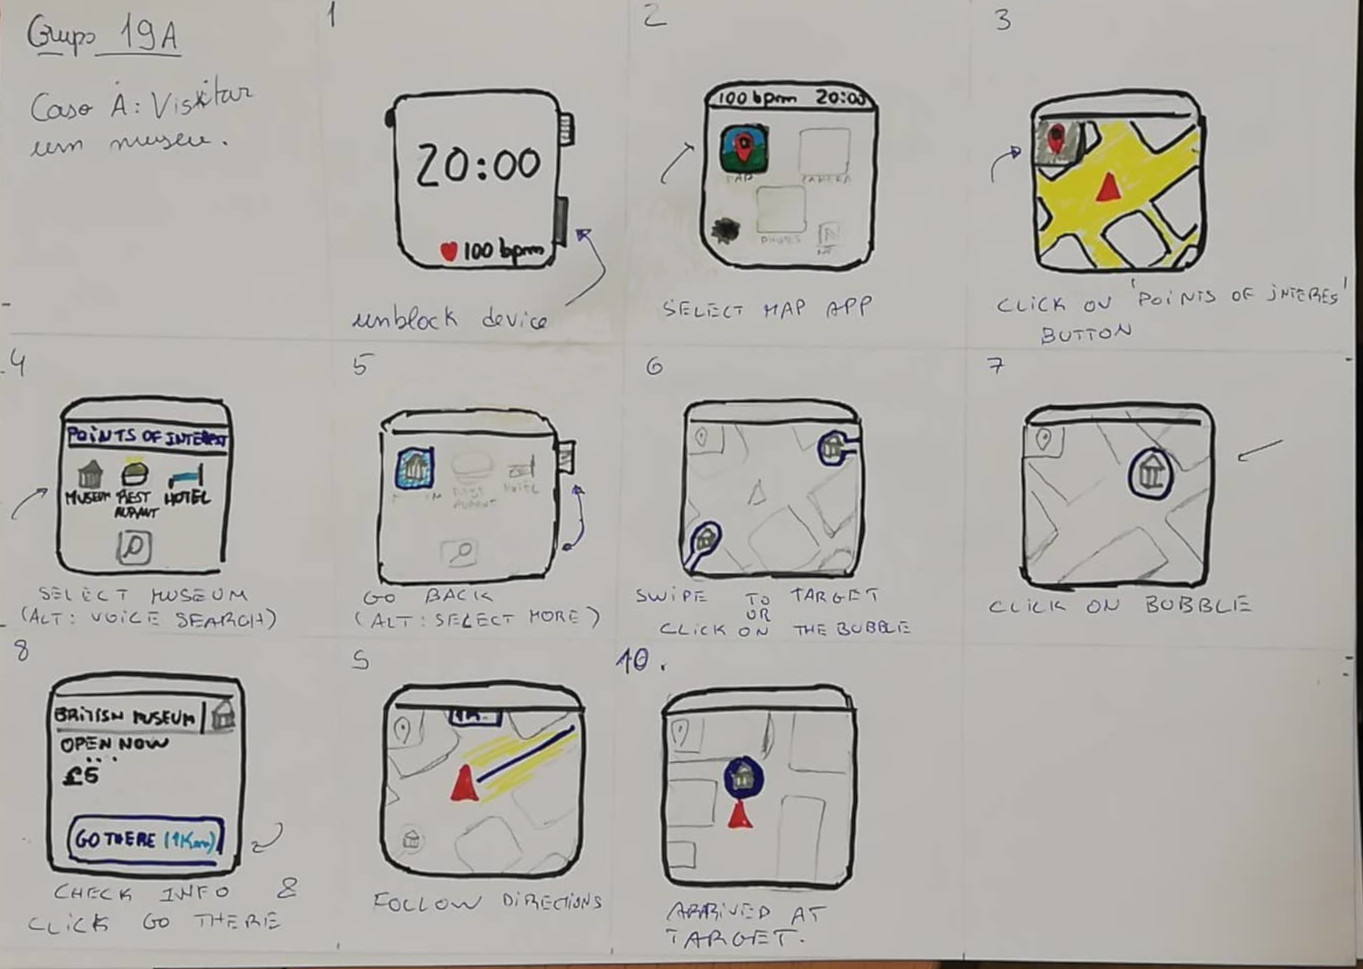 Grupo 19A
Caso A: Visitar
um museu.
1
20:00
100 bpm
unblock device
2
100 bpm 20:00
MAP
CAMERA
PHOTOS
SELECT MAP APP
3
CLICK ON 'POINTS OF INTERES'
BUTTON
4
POINTS OF INTEREST
MUSEUM REST HOTEL
AURANT
SELECT MUSEUM
(ALT: VOICE SEARCH)
5
REST HOTEL
AURANT
GO BACK
(ALT: SELECT MORE)
6
SWIPE TO TARGET
OR
CLICK ON THE BUBBLE
7
CLICK ON BUBBLE
8
BRITISH MUSEUM
OPEN NOW
...
£5
GO THERE (1Km)
CHECK INFO &
CLICK GO THERE
9
FOLLOW DIRECTIONS
10.
ARRIVED AT
TARGET.